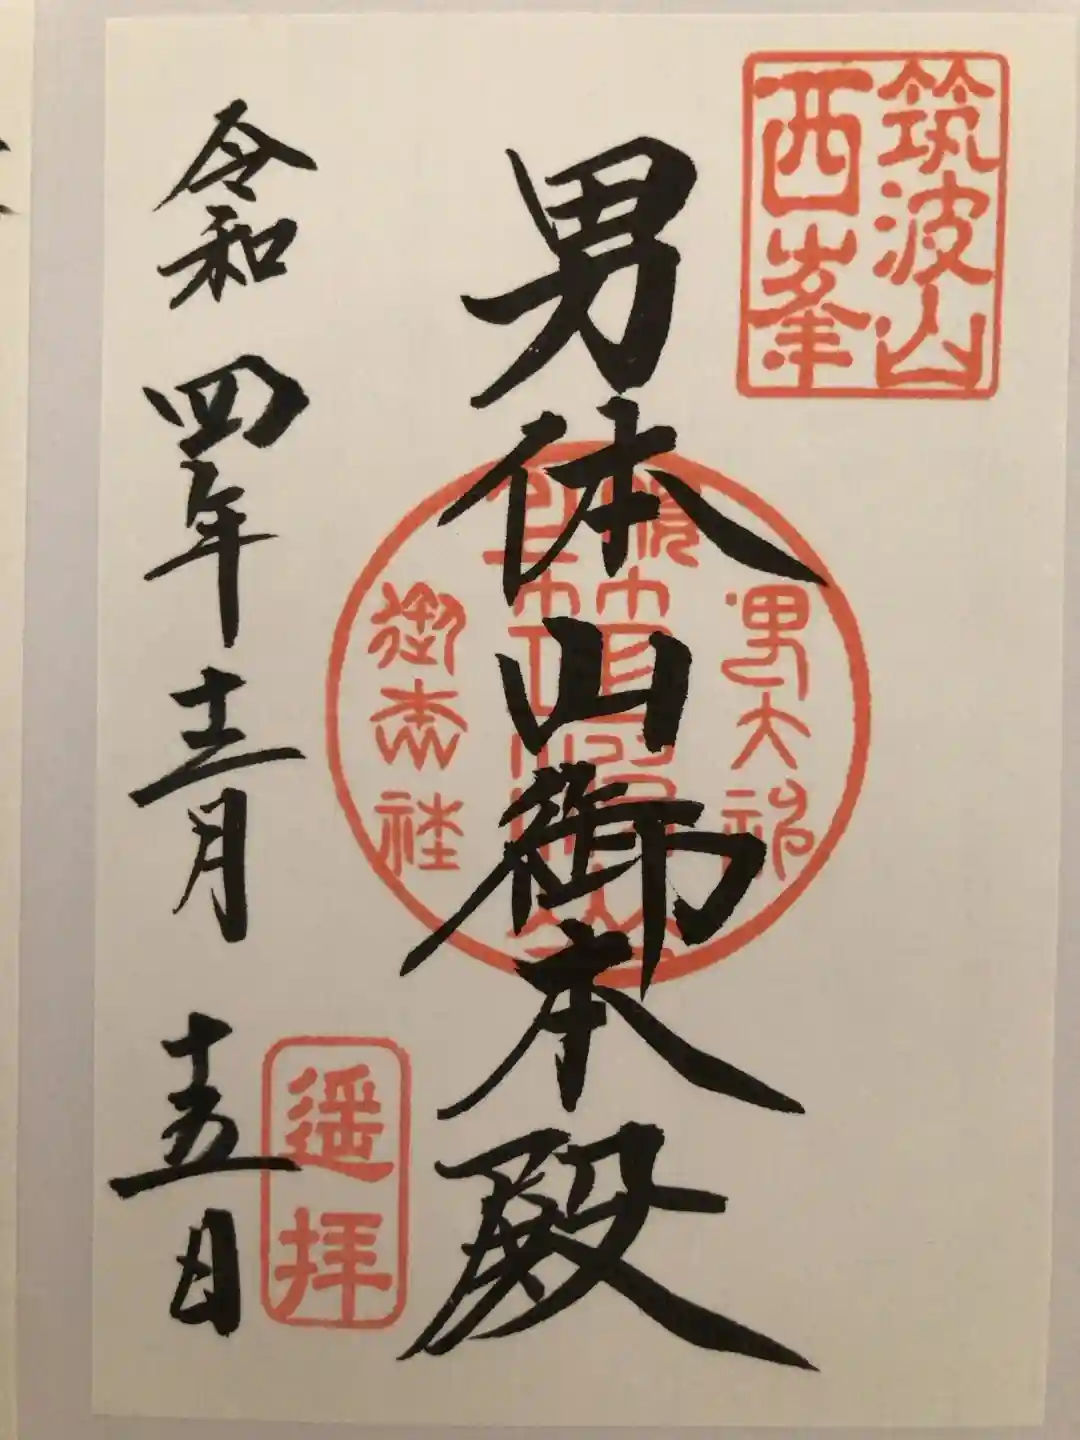 筑波山
西峯
男体山御本殿
男大神
御本社
令和四年十二月十五日
遥拝